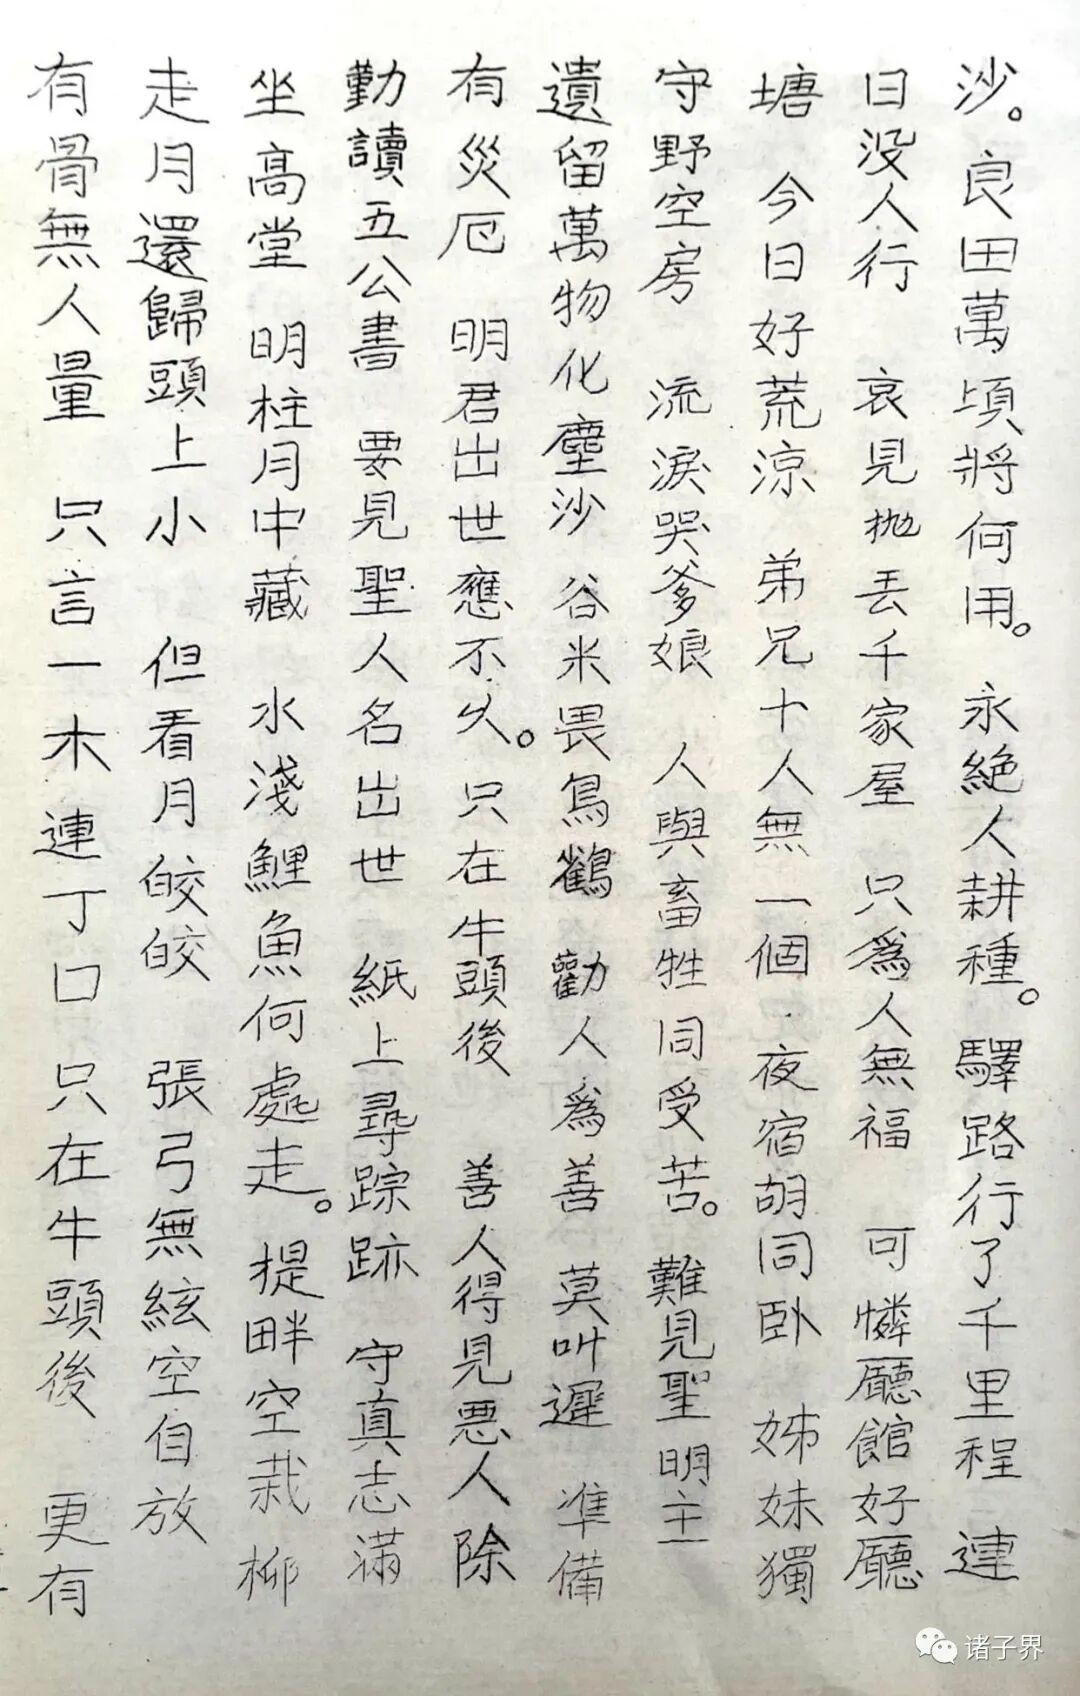 沙。良田萬頃將何用。永絕人耕種。驛路行了千里程 連
日没人行 哀見抛丟千家屋 只爲人無福 可憐廳館好廳
塘 今日好荒涼 弟兄十人無一個 夜宿胡同卧 姊妹獨
守野空房 流淚哭爹娘 人與畜牲同受苦。難見聖明主
遺留萬物化塵沙 谷米畏鳥鶴 勸人爲善 莫叫遲 準備
有災厄 明君出世應不久。只在牛頭後 善人得見悪人除
勤讀五公書 要見聖人名出世 紙上尋踪跡 守真志滿
坐高堂 明柱月中藏 水淺鯉魚何處走。提畔空栽柳
走月還歸頭上小 但看月皎皎 張弓無絃空自放
有骨無人量 只言一木連丁口 只在牛頭後 更有
诸子界